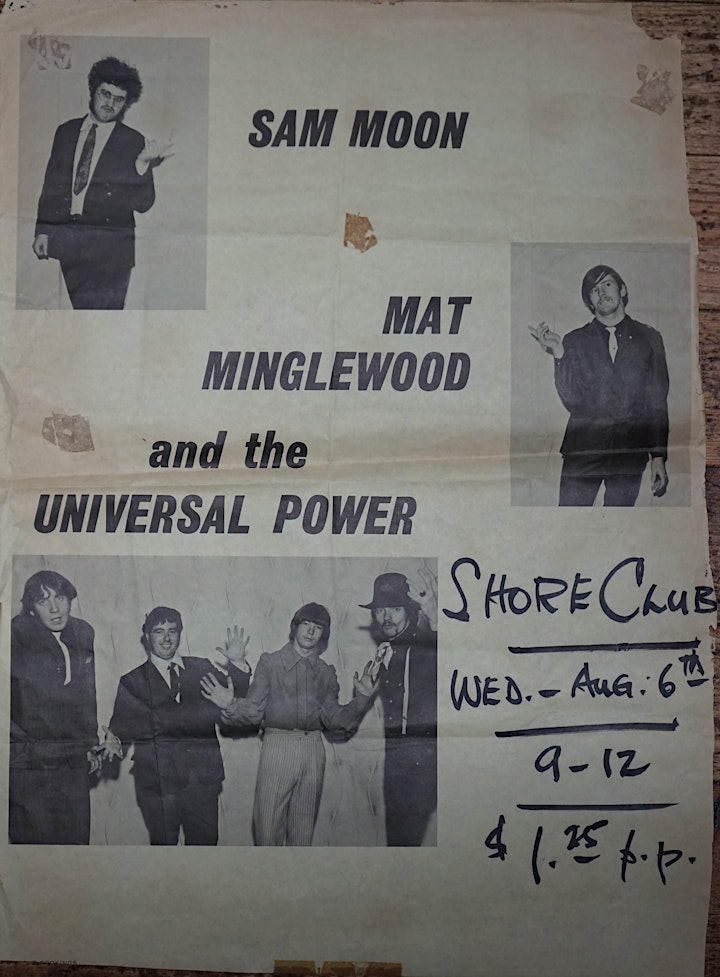 SAM MOON
MAT
MINGLEWOOD
and the
UNIVERSAL POWER
SHORE CLUB
WED. - AUG: 6TH
9-12
$1.25 p.p.